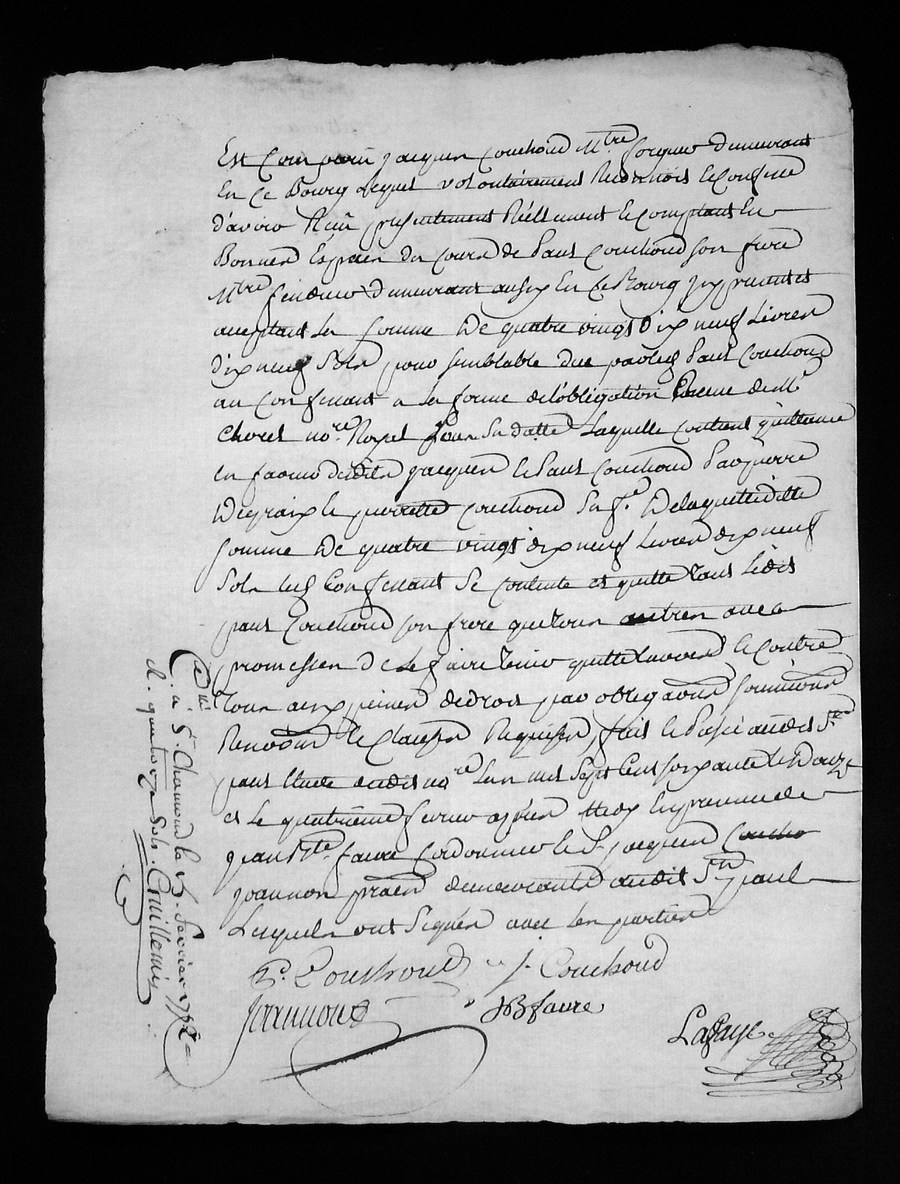 Est Comparu jacques Couchoud M.tre forgeur demeurant
En Ce Bourg Lequel volontairement Reconnois & confesse
d'avoir Reçu presentement Réellement & comptant En
Bonnes Espèces du Cours de Paul Couchoud son frere
M.tre demeurant aussy En Ce Bourg Icy present et
acceptant La somme De quatre vingt Dix neuf Livres
dix neuf Sols pour semblable due par led Paul Couchoud
au Confessant a la forme de l'obligation Recue de M.e
Choret no.re Royal sous sa datte Laquelle contient quittance
en faveur desdits jacques & Paul Couchoud par pierre
& pierrette Couchoud De laquelle ditte
somme De quatre vingt dix neuf Livres dix neuf
Sols led Confessant Se contente et quitte tant ledit
paul Couchoud son frere que tous autres avec
promesses de Le faire tenir quitte envers & contre
tous aux peines de droit par obligations soumissions
Renoons & Clauses Requises, fait & Passé audit St
paul Etude dudit no.re L'an mil Sept Cent soixante & Douze
et Le quatrieme fevrier apres Midy En presence de
jean B.te faure Cordonnier & S.r jacques
joannon praen demeurants audit St paul
Lesquels ont Signés avec les parties
P. Couchoud J. Couchoud
Joannond JB faure
Lafaye
C.lle
à S.t Chamond le 7. fevrier 1772
d. quatorze sols. Guillemin